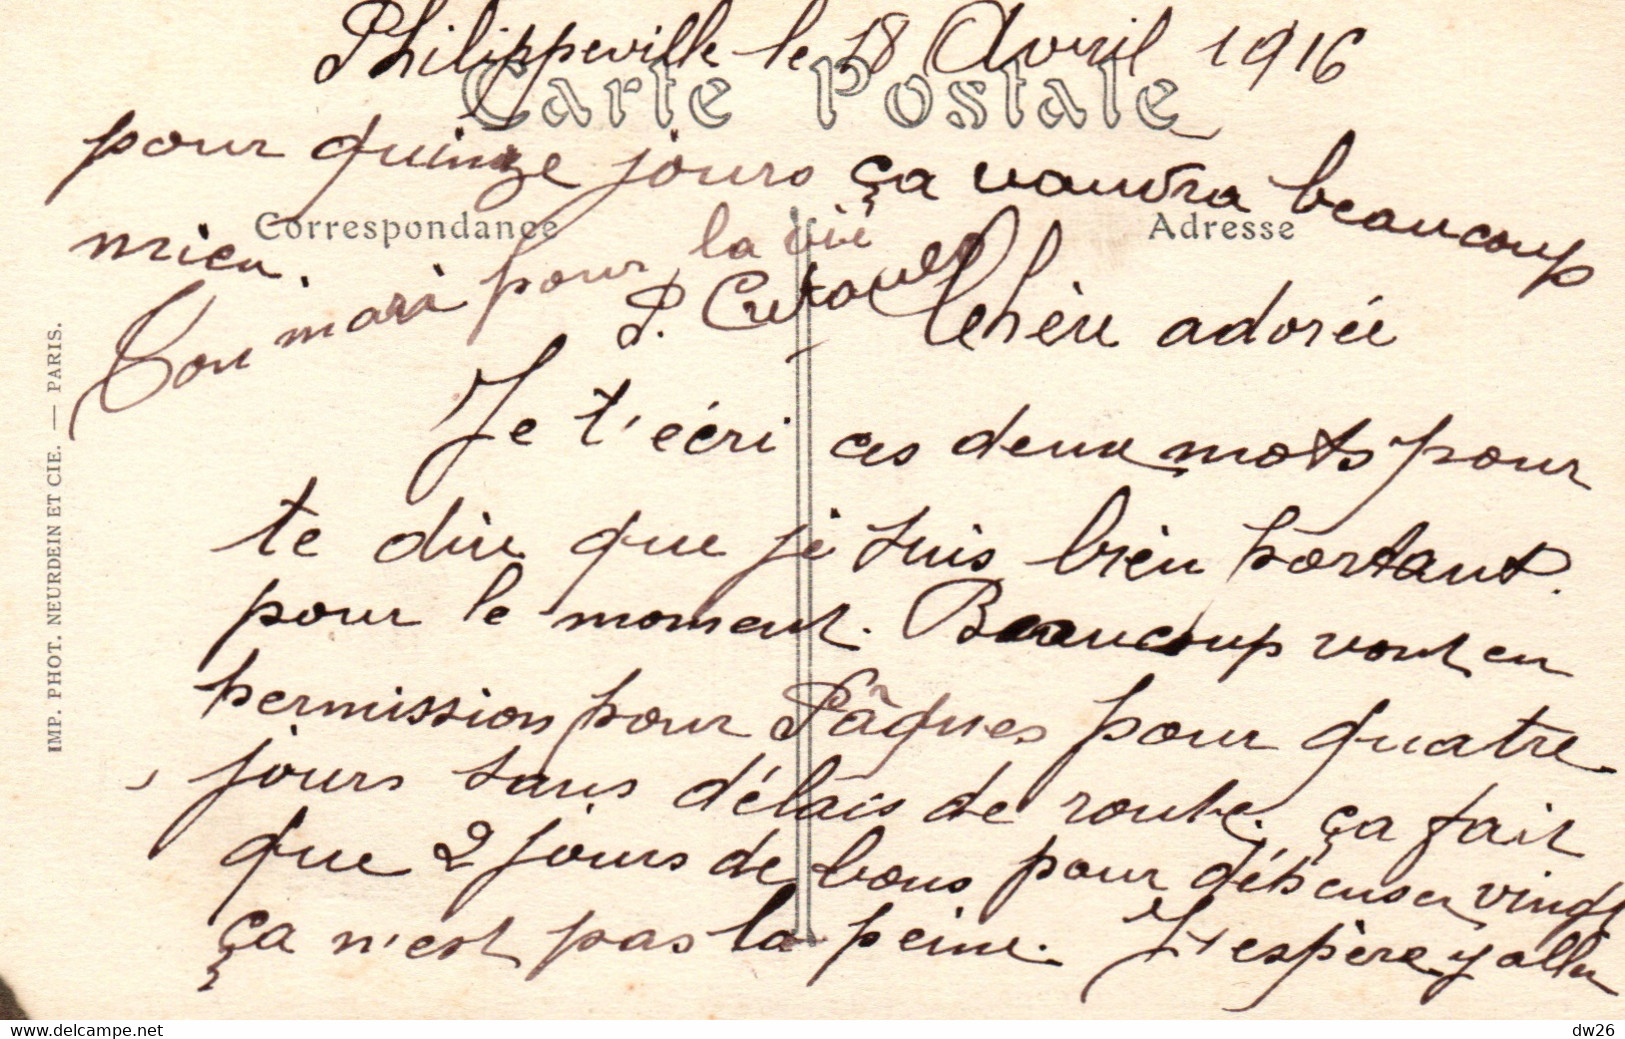 Philippeville le 18 Avril 1916
Carte Postale
pour quinze jours ça vaudra beaucoup
mieu.
Correspondance
Adresse
Ton mari pour la vie
P.
Chère adorée
Je t'écri ces deux mots pour
te dire que je suis bien portant.
pour le moment. Beaucoup vont en
permission pour Pâques pour quatre
jours sans délais de route. ça fait
que 2 jours de bons pour dépenser vingt
ça n'est pas la peine. J'espère y aller
IMP. PHOT. NEURDEIN ET CIE. — PARIS.
www.delcampe.net
dw26